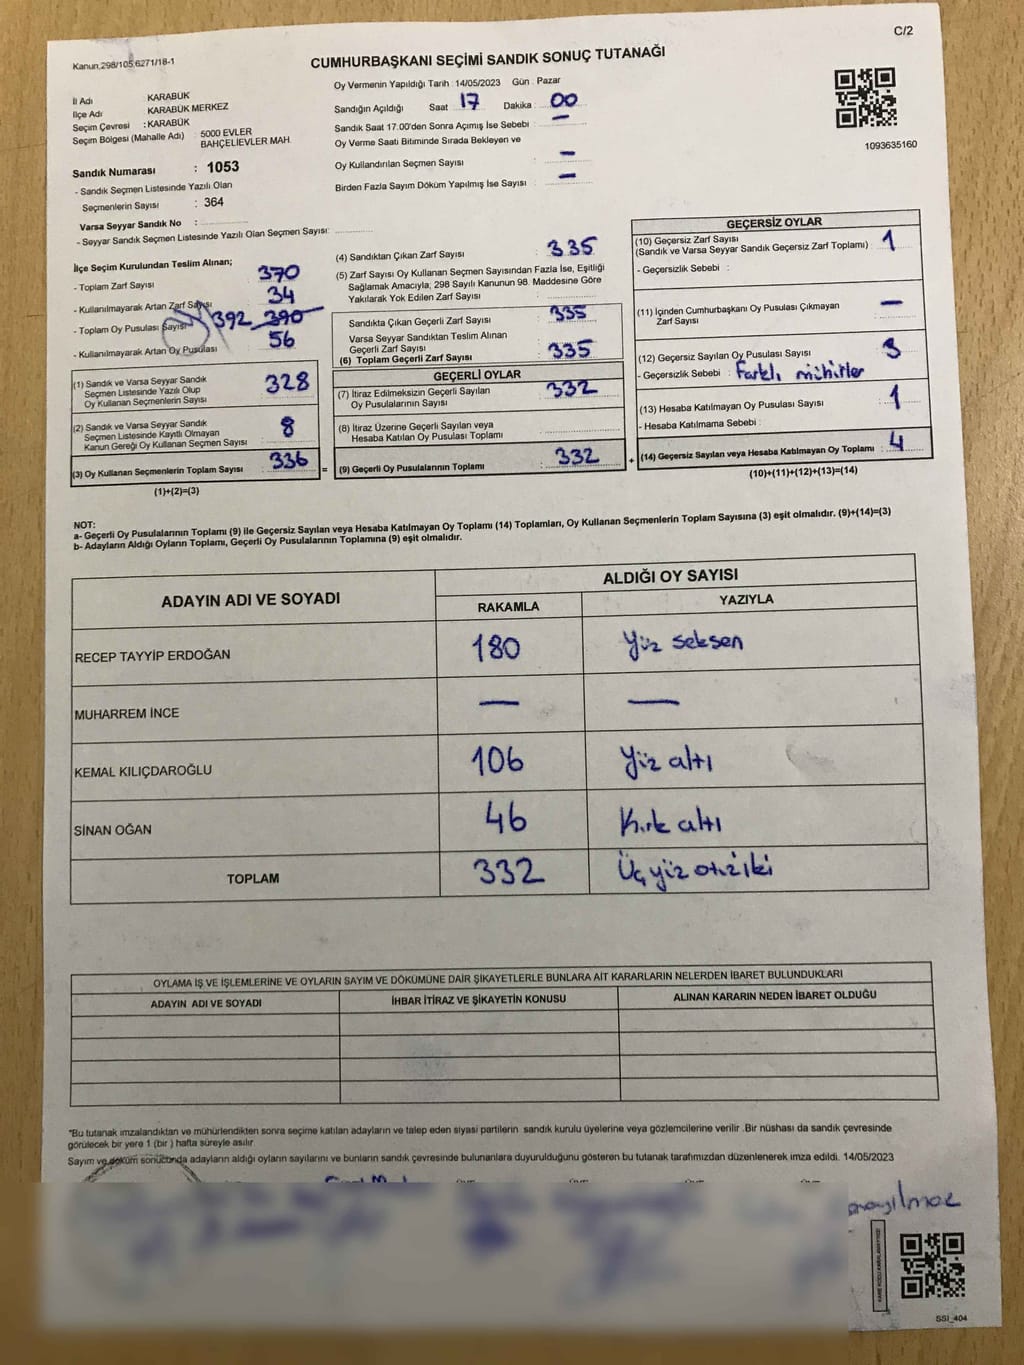 C/2
Kanun,298/105,6271/18-1
CUMHURBAŞKANI SEÇİMİ SANDIK SONUÇ TUTANAĞI
İl Adı KARABÜK
İlçe Adı KARABÜK MERKEZ
Seçim Çevresi : KARABÜK
Seçim Bölgesi (Mahalle Adı) 5000 EVLER
BAHÇELİEVLER MAH.
Sandık Numarası : 1053
- Sandık Seçmen Listesinde Yazılı Olan
Seçmenlerin Sayısı : 364
Varsa Seyyar Sandık No :
- Seyyar Sandık Seçmen Listesinde Yazılı Olan Seçmen Sayısı:
Oy Vermenin Yapıldığı Tarih : 14/05/2023 Gün : Pazar
Sandığın Açıldığı Saat 17 Dakika : 00
Sandık Saat 17.00'den Sonra Açımış İse Sebebi : —
Oy Verme Saati Bitiminde Sırada Bekleyen ve
Oy Kullandırılan Seçmen Sayısı : —
Birden Fazla Sayım Döküm Yapılmış İse Sayısı : —
1093635160
İlçe Seçim Kurulundan Teslim Alınan;
- Toplam Zarf Sayısı : 370
- Kullanılmayarak Artan Zarf Sayısı 34
- Toplam Oy Pusulası Sayısı 392 390
- Kullanılmayarak Artan Oy Pusulası 56
(1) Sandık ve Varsa Seyyar Sandık
Seçmen Listesinde Yazılı Olup
Oy Kullanan Seçmenlerin Sayısı : 328
(2) Sandık ve Varsa Seyyar Sandık
Seçmen Listesinde Kayıtlı Olmayan
Kanun Gereği Oy Kullanan Seçmen Sayısı : 8
(3) Oy Kullanan Seçmenlerin Toplam Sayısı : 336 =
(1)+(2)=(3)
(4) Sandıktan Çıkan Zarf Sayısı : 335
(5) Zarf Sayısı Oy Kullanan Seçmen Sayısından Fazla İse, Eşitliği
Sağlamak Amacıyla; 298 Sayılı Kanunun 98. Maddesine Göre
Yakılarak Yok Edilen Zarf Sayısı :
Sandıkta Çıkan Geçerli Zarf Sayısı : 335
Varsa Seyyar Sandıktan Teslim Alınan
Geçerli Zarf Sayısı :
(6) Toplam Geçerli Zarf Sayısı : 335
GEÇERLİ OYLAR
(7) İtiraz Edilmeksizin Geçerli Sayılan
Oy Pusulalarının Sayısı : 332
(8) İtiraz Üzerine Geçerli Sayılan veya
Hesaba Katılan Oy Pusulası Toplamı :
(9) Geçerli Oy Pusulalarının Toplamı : 332 +
GEÇERSİZ OYLAR
(10) Geçersiz Zarf Sayısı
(Sandık ve Varsa Seyyar Sandık Geçersiz Zarf Toplamı) : 1
- Geçersizlik Sebebi :
(11) İçinden Cumhurbaşkanı Oy Pusulası Çıkmayan
Zarf Sayısı : —
(12) Geçersiz Sayılan Oy Pusulası Sayısı : 3
- Geçersizlik Sebebi : Farklı mühürler
(13) Hesaba Katılmayan Oy Pusulası Sayısı : 1
- Hesaba Katılmama Sebebi :
(14) Geçersiz Sayılan veya Hesaba Katılmayan Oy Toplamı : 4
(10)+(11)+(12)+(13)=(14)
NOT:
a- Geçerli Oy Pusulalarının Toplamı (9) ile Geçersiz Sayılan veya Hesaba Katılmayan Oy Toplamı (14) Toplamları, Oy Kullanan Seçmenlerin Toplam Sayısına (3) eşit olmalıdır. (9)+(14)=(3)
b- Adayların Aldığı Oyların Toplamı, Geçerli Oy Pusulalarının Toplamına (9) eşit olmalıdır.
ADAYIN ADI VE SOYADI ALDIĞI OY SAYISI
RAKAMLA YAZIYLA
RECEP TAYYİP ERDOĞAN 180 Yüz seksen
MUHARREM İNCE — —
KEMAL KILIÇDAROĞLU 106 Yüz altı
SİNAN OĞAN 46 Kırk altı
TOPLAM 332 Üç yüz otuz iki
OYLAMA İŞ VE İŞLEMLERİNE VE OYLARIN SAYIM VE DÖKÜMÜNE DAİR ŞİKAYETLERLE BUNLARA AİT KARARLARIN NELERDEN İBARET BULUNDUKLARI
ADAYIN ADI VE SOYADI İHBAR İTİRAZ VE ŞİKAYETİN KONUSU ALINAN KARARIN NEDEN İBARET OLDUĞU
*Bu tutanak imzalandıktan ve mühürlendikten sonra seçime katılan adayların ve talep eden siyasi partilerin sandık kurulu üyelerine veya gözlemcilerine verilir .Bir nüshası da sandık çevresinde
görülecek bir yere 1 (bir ) hafta süreyle asılır
Sayım ve döküm sonucunda adayların aldığı oyların sayılarını ve bunların sandık çevresinde bulunanlara duyurulduğunu gösteren bu tutanak tarafımızdan düzenlenerek imza edildi. 14/05/2023
KARE KODU KARALAMAYINIZ!
SSI_404